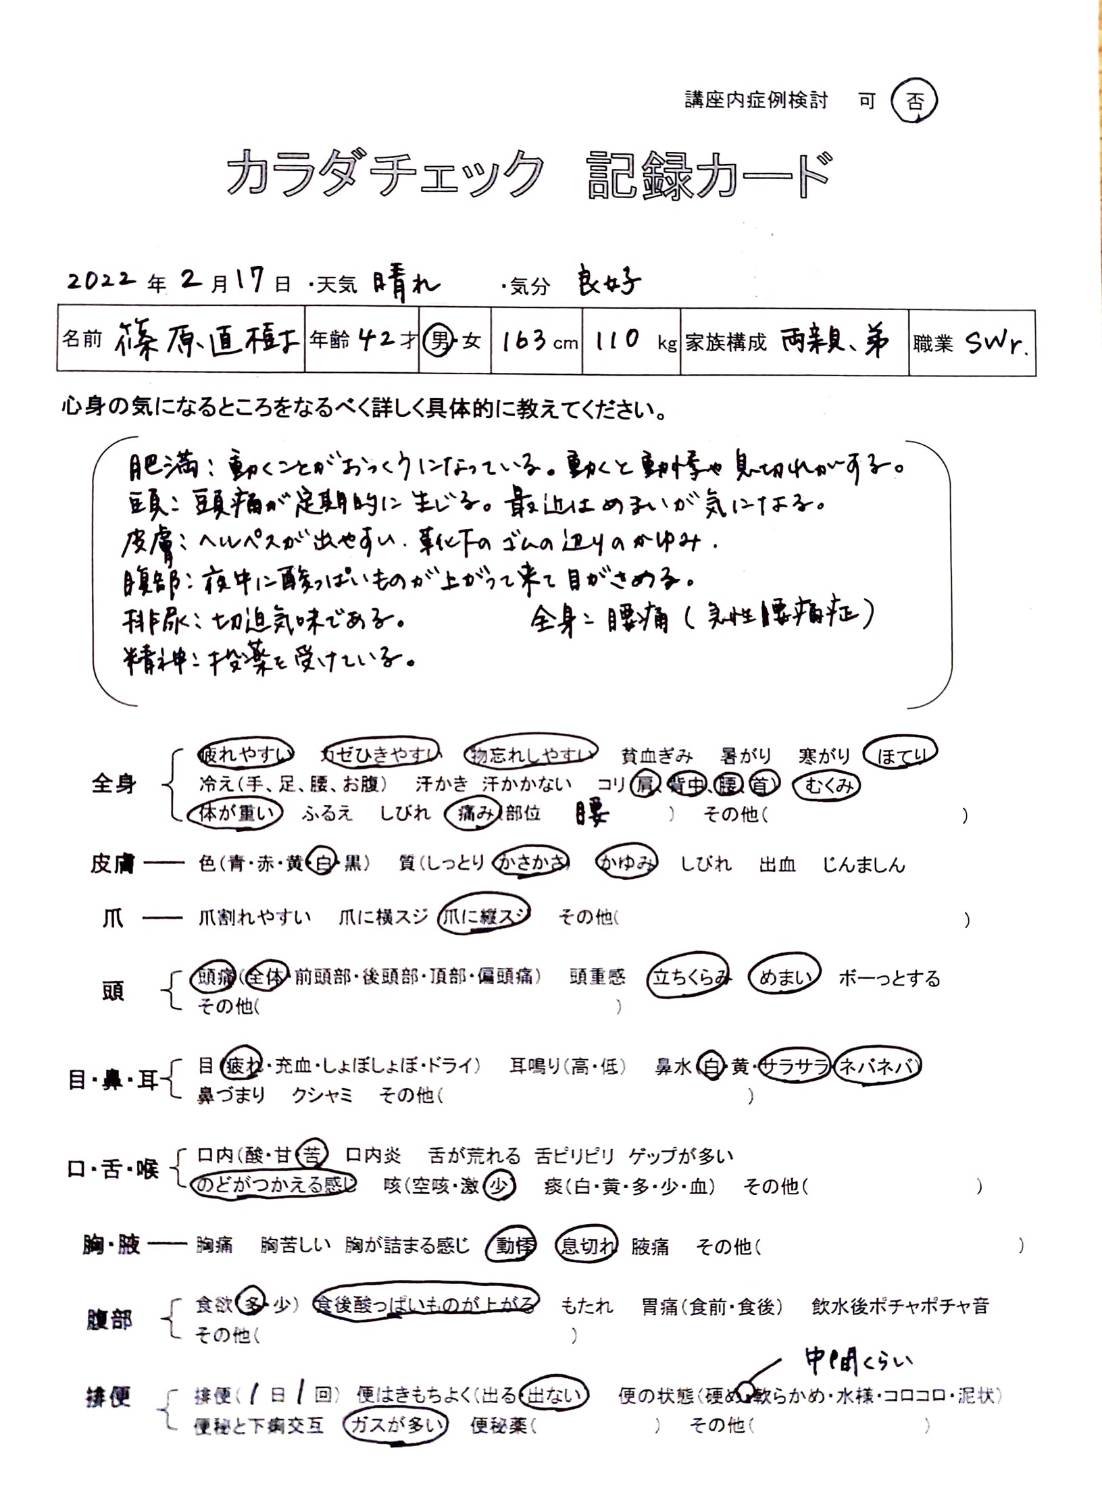 講座内症例検討 可 否
カラダチェック 記録カード
2022年2月17日 ・天気 晴れ ・気分 良好
名前 篠原直樹 年齢42才 男・女 163cm 110kg 家族構成 両親、弟 職業 SWr.
心身の気になるところをなるべく詳しく具体的に教えてください。
肥満：動くことがおっくうになっている。動くと動悸や息切れがする。
頭：頭痛が定期的に生じる。最近はめまいが気になる。
皮膚：ヘルペスが出やすい．靴下のゴムの辺りのかゆみ．
腹部：夜中に酸っぱいものが上がって来て目がさめる。
排尿：切迫気味である。 全身：腰痛（急性腰痛症）
精神：投薬を受けている。
全身 疲れやすい カゼひきやすい 物忘れしやすい 貧血ぎみ 暑がり 寒がり ほてり
冷え(手、足、腰、お腹) 汗かき 汗かかない コリ(肩、背中、腰、首) むくみ
体が重い ふるえ しびれ 痛み(部位 腰 ) その他( )
皮膚 色(青・赤・黄・白・黒) 質(しっとり・かさかさ) かゆみ しびれ 出血 じんましん
爪 爪割れやすい 爪に横スジ 爪に縦スジ その他( )
頭 頭痛(全体・前頭部・後頭部・頂部・偏頭痛) 頭重感 立ちくらみ めまい ボーっとする
その他( )
目・鼻・耳 目(疲れ・充血・しょぼしょぼ・ドライ) 耳鳴り(高・低) 鼻水(白・黄・サラサラ・ネバネバ)
鼻づまり クシャミ その他( )
口・舌・喉 口内(酸・甘・苦) 口内炎 舌が荒れる 舌ピリピリ ゲップが多い
のどがつかえる感じ 咳(空咳・激・少) 痰(白・黄・多・少・血) その他( )
胸・腋 胸痛 胸苦しい 胸が詰まる感じ 動悸 息切れ 腋痛 その他( )
腹部 食欲(多・少) 食後酸っぱいものが上がる もたれ 胃痛(食前・食後) 飲水後ポチャポチャ音
その他( )
中間くらい
排便 排便(1日1回) 便はきもちよく(出る・出ない) 便の状態(硬め・軟らかめ・水様・コロコロ・泥状)
便秘と下痢交互 ガスが多い 便秘薬( ) その他( )